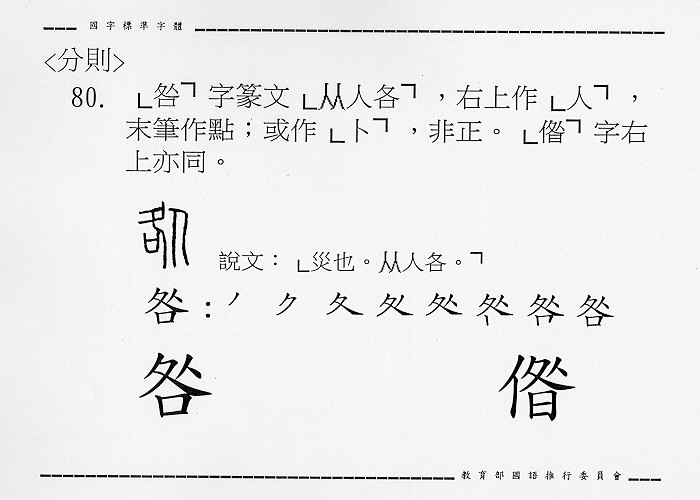 國字標準字體
<分則>
80. ㄴ咎ㄱ字篆文ㄴ从人各ㄱ，右上作ㄴ人ㄱ，
末筆作點；或作ㄴ卜ㄱ，非正。ㄴ偺ㄱ字右
上亦同。
說文：ㄴ災也。从人各。ㄱ
咎：丿 ク 夂 处 咎
咎 偺
教育部國語推行委員會